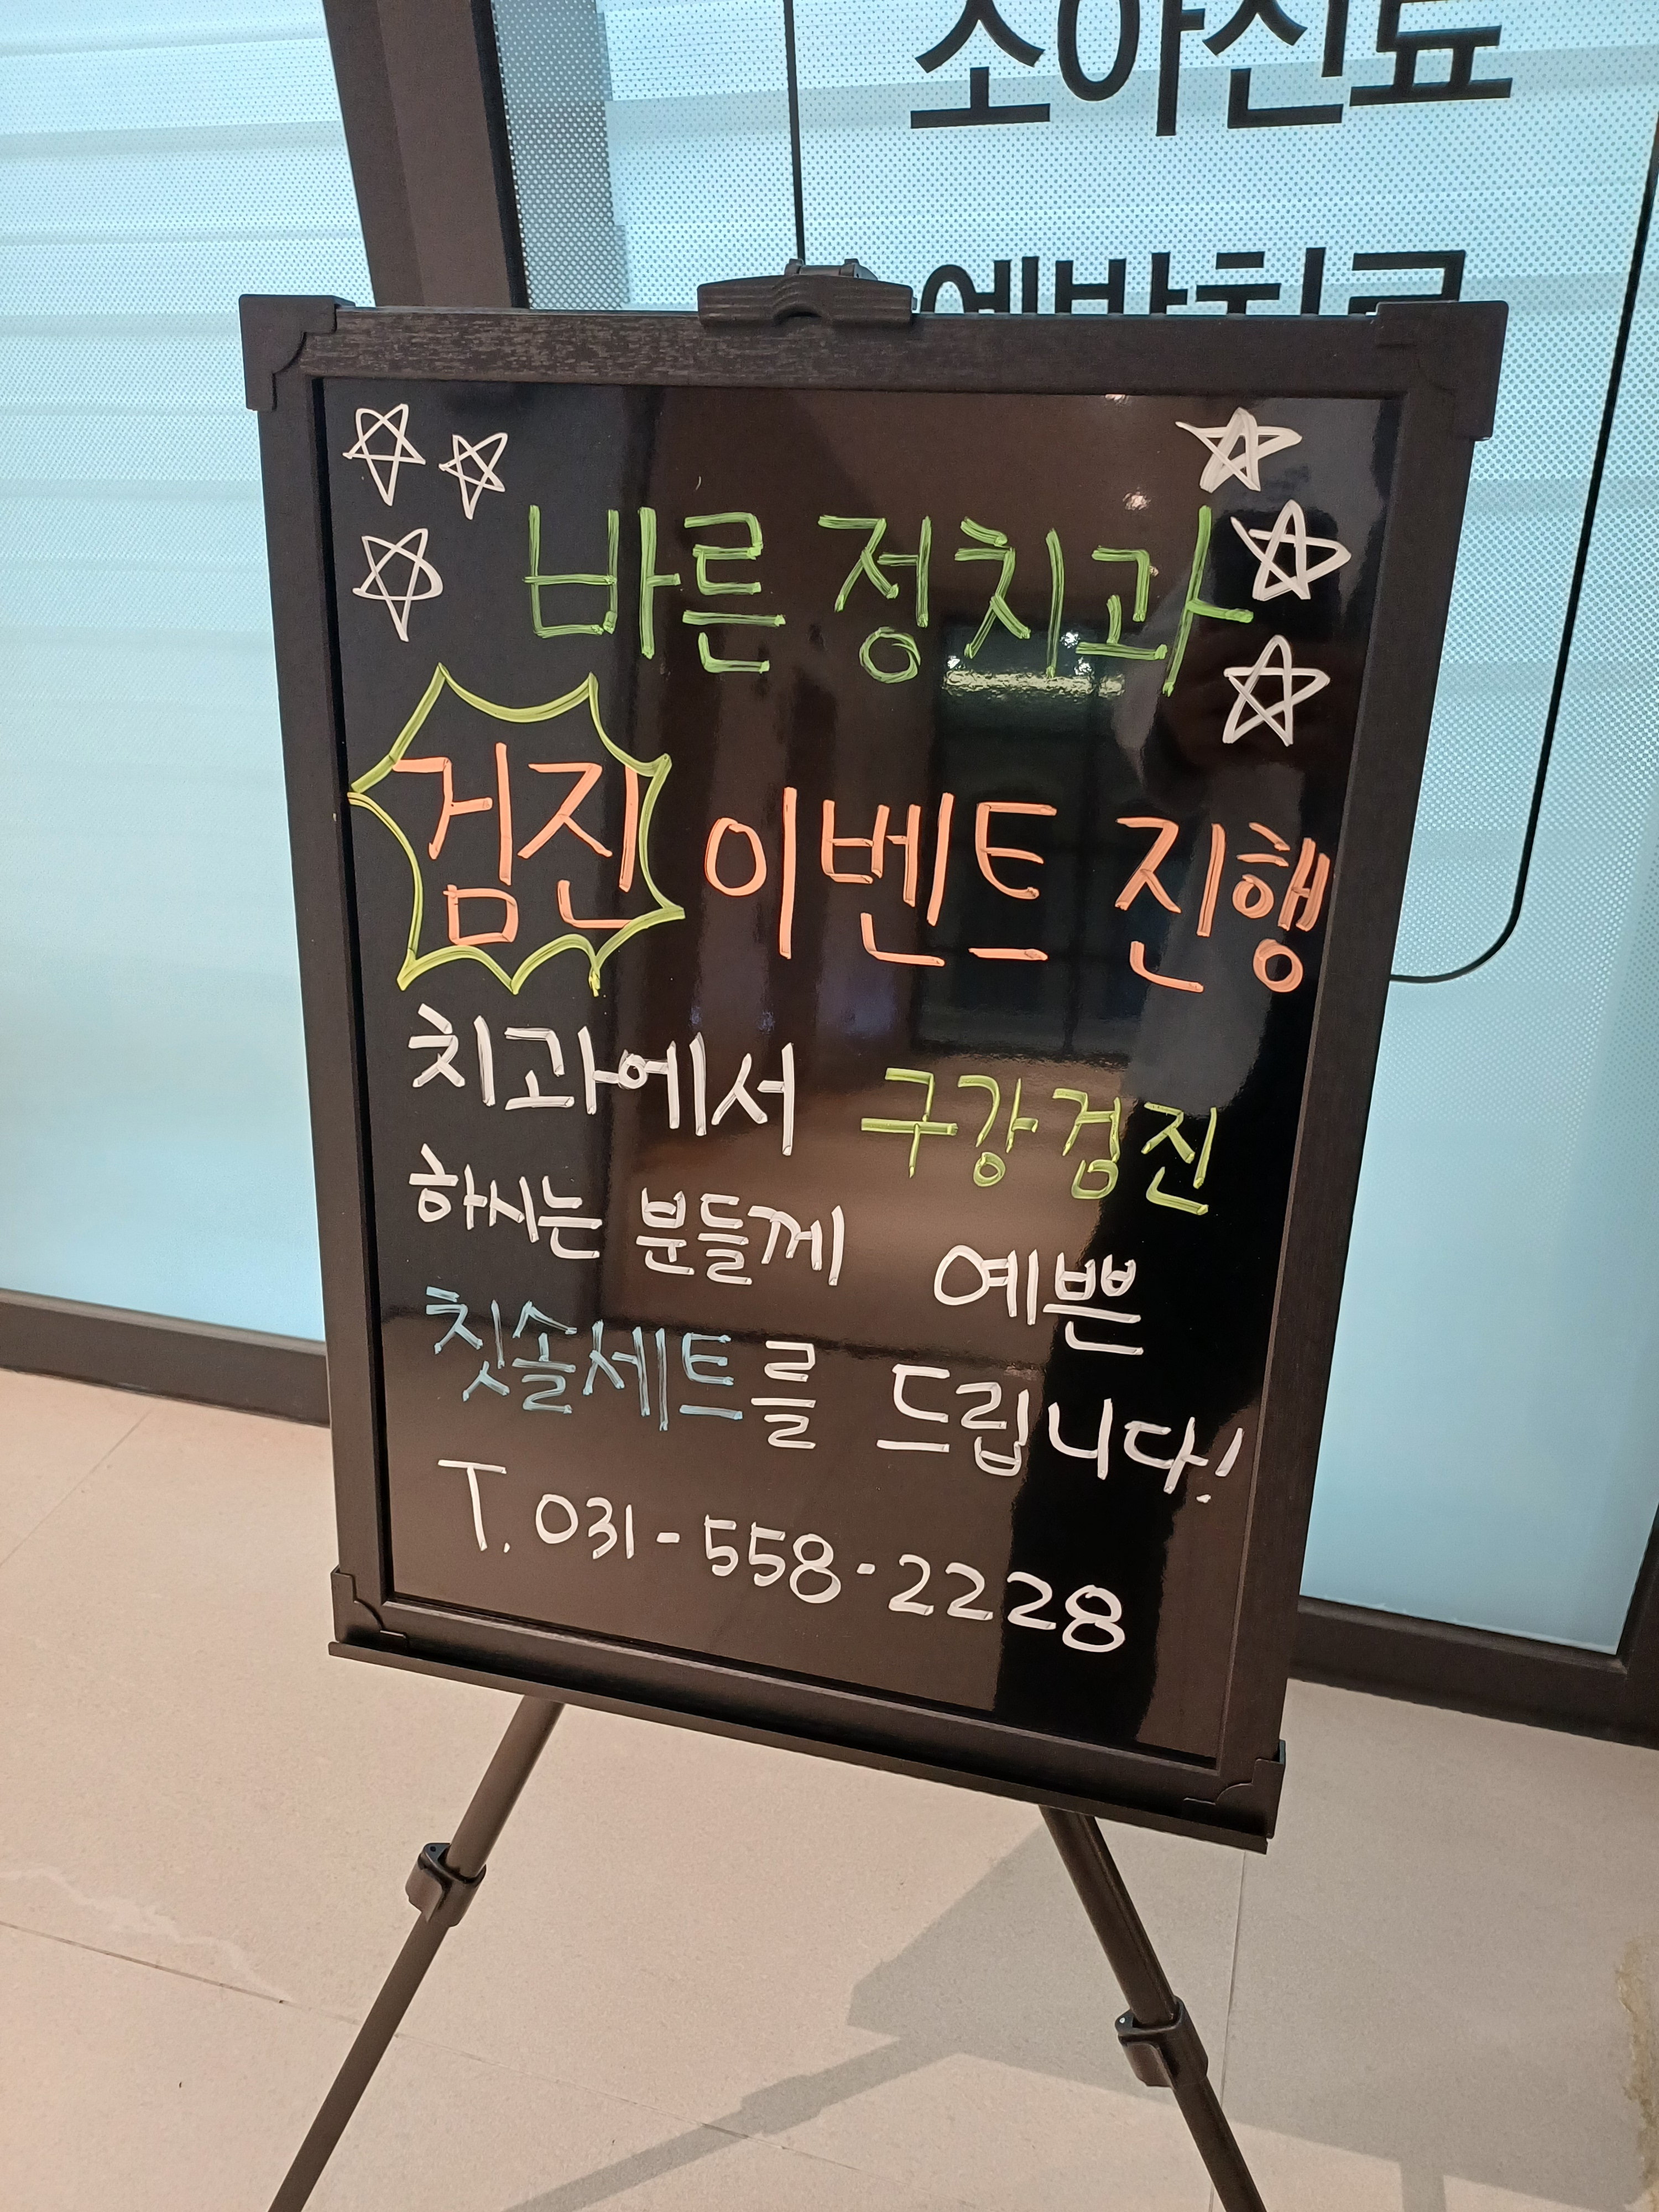 소아진료
예방치료
바른 정치과
검진 이벤트 진행
치과에서 구강검진
하시는 분들께 예쁜
칫솔세트를 드립니다!
T. 031-558-2228